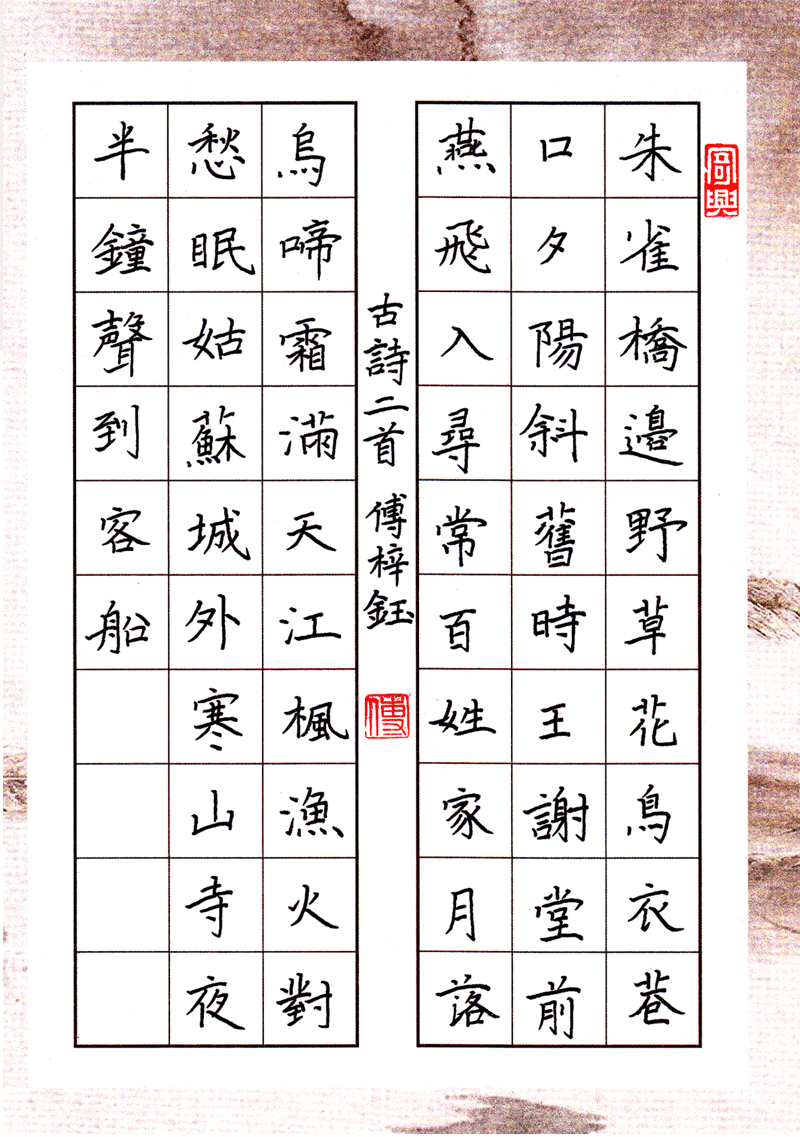 朱雀橋邊野草花鳥衣巷
口夕陽斜舊時王謝堂前
燕飛入尋常百姓家月落
古詩二首 傅梓鈺
傅
烏啼霜滿天江楓漁火對
愁眠姑蘇城外寒山寺夜
半鐘聲到客船